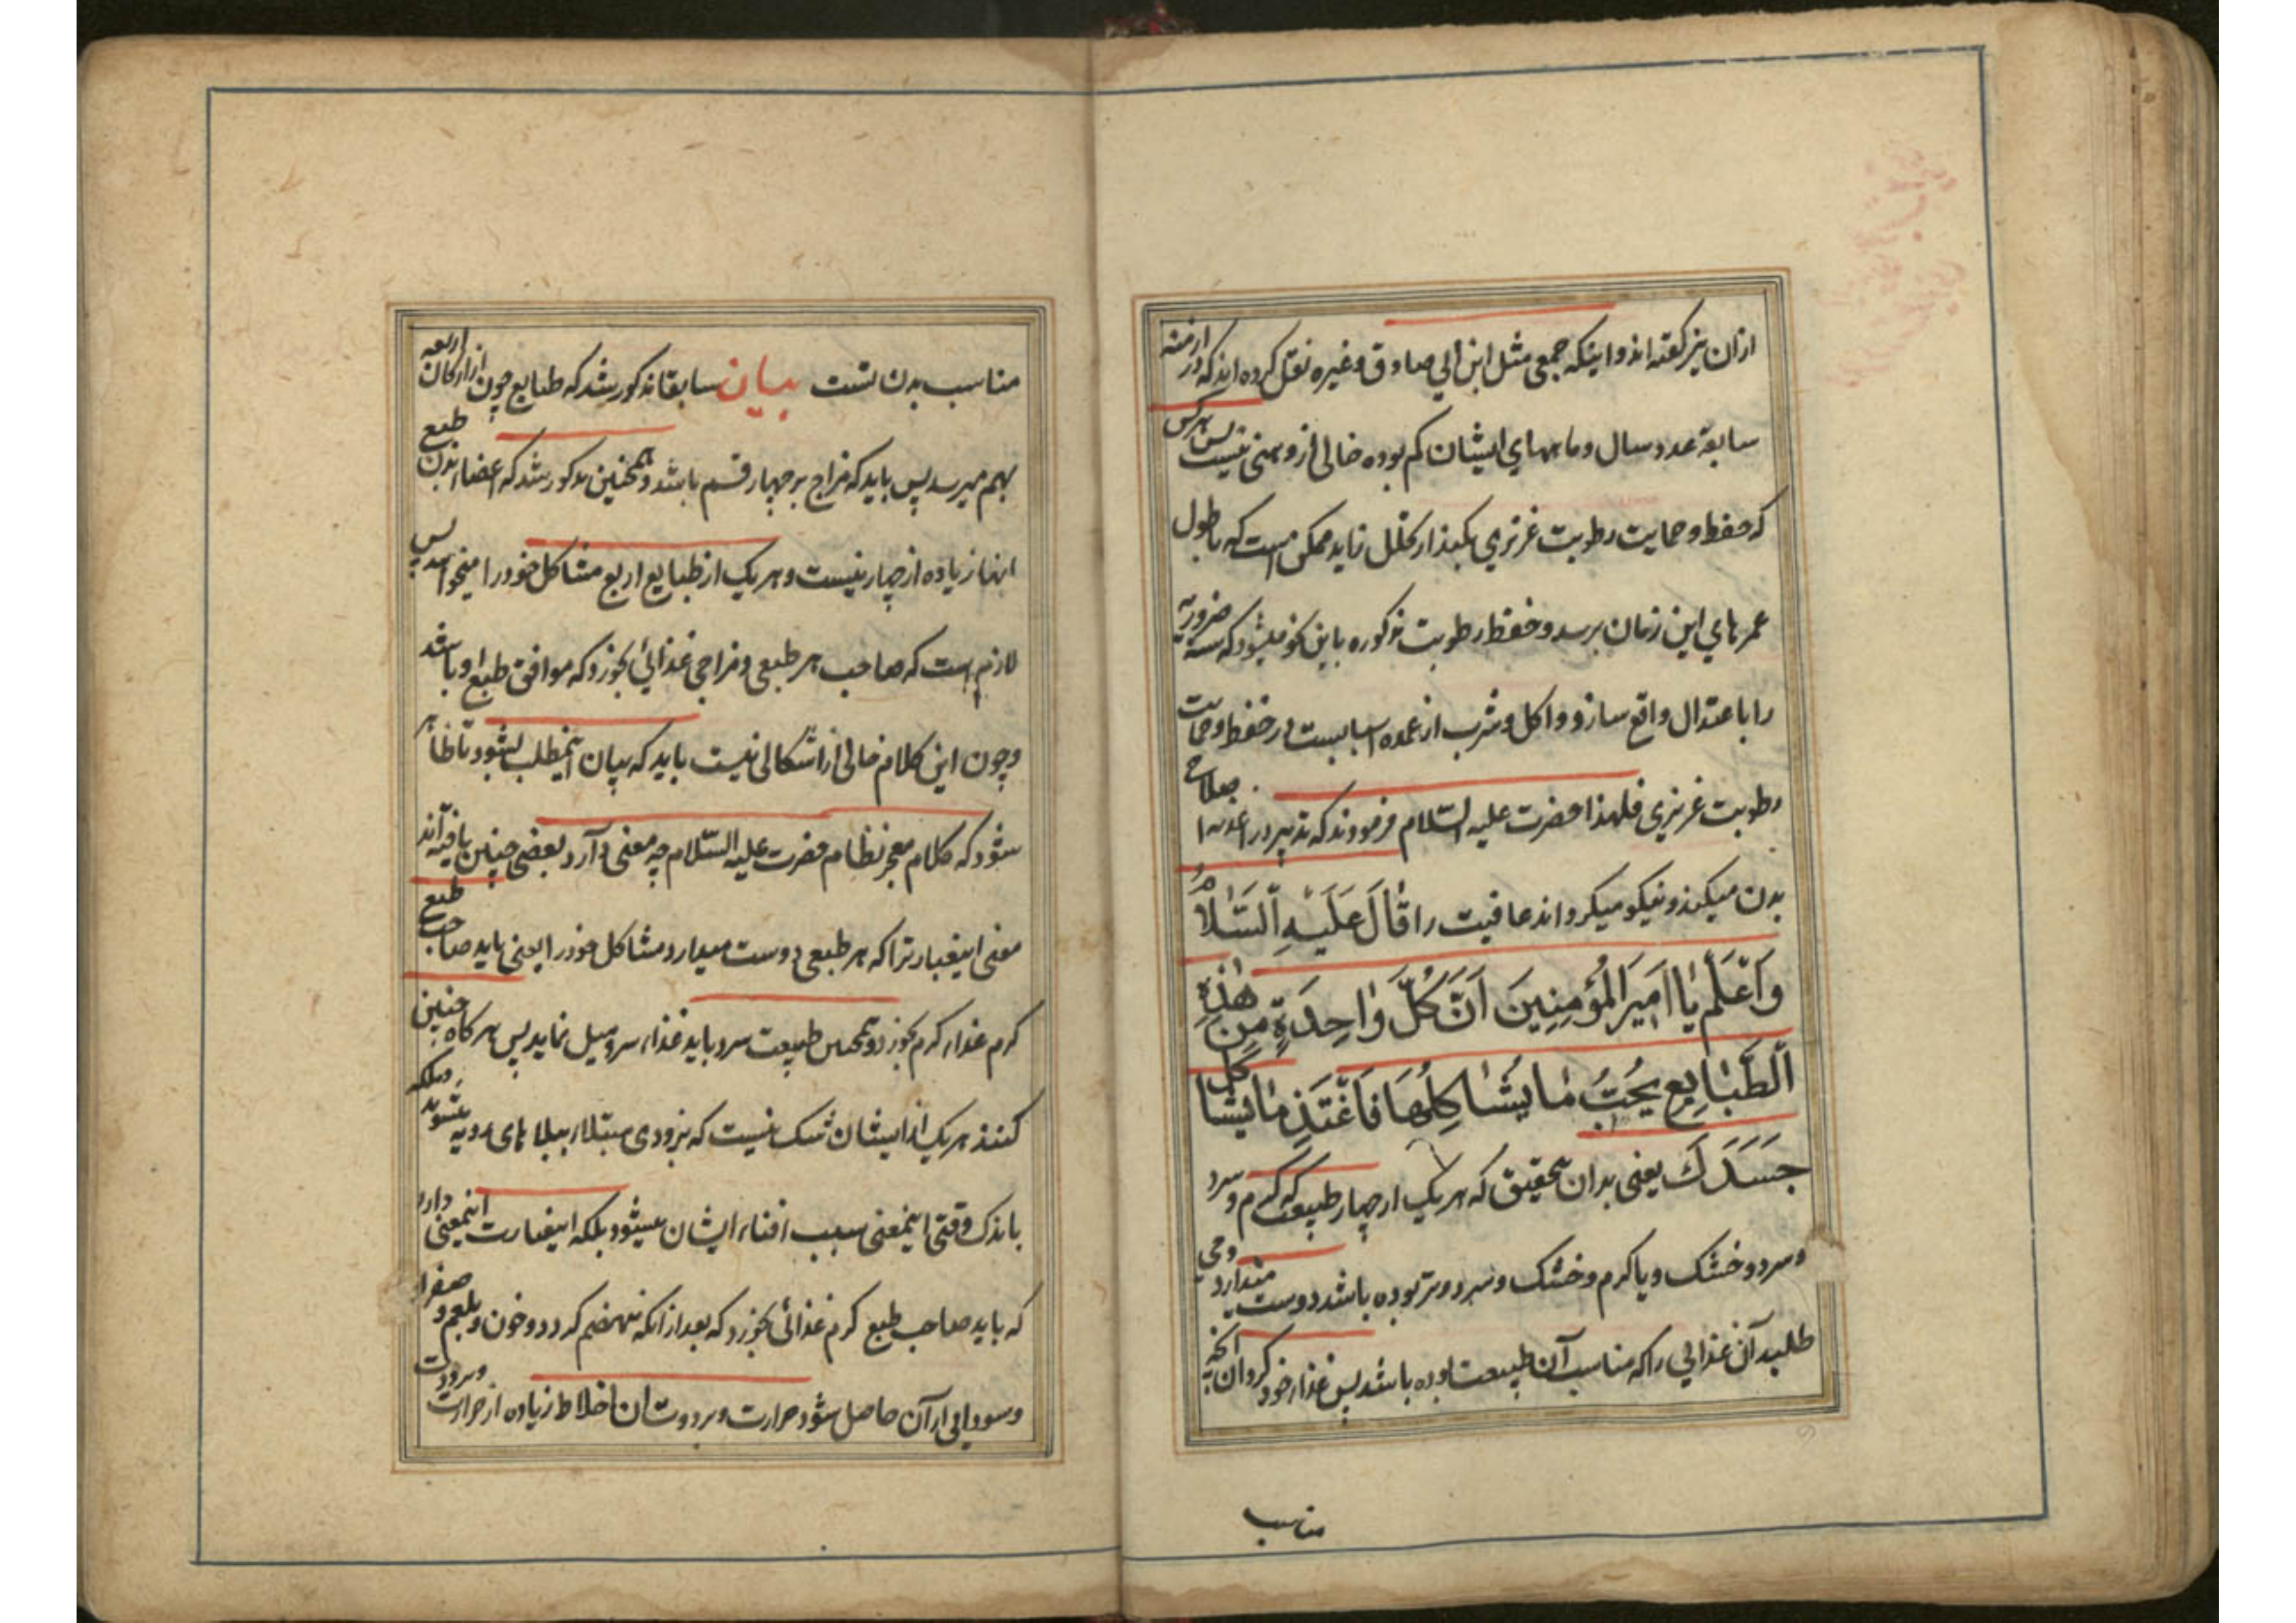 ازان نیز گفته اند و اینکه جمعی مثل ابن ابی صادق و غیره نقل کرده اند که در ازمنه
سابقه عدد سال و ماههای ایشان کم بوده خالی از وهنی نیست پس هرکس
که حفظ و حمایت رطوبت غریزی بکند از تحلل زاید ممکن است که بطول
عمرهای این زمان برسد و حفظ رطوبت مذکوره باین نحو میشود که سته ضروریه
را باعتدال واقع سازد و اکل و شرب از عمده اسبابست در حفظ و حمایت
رطوبت غریزی فلهذا حضرت علیه السّلام فرمودند که تدبیر در اغذیه اصلاح
بدن میکند و نیکو میگرداند عافیت را قَالَ عَلَیْهِ السَّلَامُ
وَاَعْلَمْ یٰا اَمیٖرَالمُؤمِنِینَ اَنَّ کُلَّ وٰاحِدَةٍ مِن هٰذِهِ
الطَّبٰایِعِ یُحِبُّ مٰا یُشٰاکِلُهَا فَاغْتَذِ مٰا یُشٰاکِلُ
جَسَدَكَ یعنی بدان تحقیق که هر یک از چهار طبیعت که گرم و سرد
و سرد و خشک و یا گرم و خشک و سرد و تر بوده باشد دوست میدارد و می
طلبد آن غذایی را که مناسب آن طبیعت بوده باشد پس غذاء خود گردان آنچه
مناسب
مناسب بدن تست بیان سابقا مذکور شد که طبایع چون از ارکان اربعه
بهم میرسد پس باید که مزاج بر چهار قسم باشد و همچنین مذکور شد که اعضاء بدن طبع
اینها زیاده از چهار نیست و هر یک از طبایع اربع مشاکل خود را میخواهد پس
لازم است که صاحب هر طبعی و مزاجی غذائی بخورد که موافق طبع او باشد
و چون این کلام خالی از اشکالی نیست باید که بیان اینمطلب بشود تا ظاهر
شود که کلام معجز نظام حضرت علیه السّلام چه معنی دارد بعضی چنین یافته‌اند
معنی اینعبارترا که هر طبعی دوست میدارد مشاکل خود را یعنی باید صاحب طبع
گرم غذاء گرم بخورد و همچنین طبیعت سرد باید غذاء سرد میل نماید پس هرگاه چنین
کنند هر یک از ایشان شک نیست که بزودی مبتلا ببلاهای ردیه مهلکه میشوند
باندک وقتی اینمعنی سبب افناء ایشان میشود بلکه اینعبارت اینمعنی دارد
که باید صاحب طبع گرم غذائی بخورد که بعد از انکه منهضم گردد و خون و بلغم و صفرا
و سودایی از آن حاصل شود حرارت و برودت ان اخلاط زیاده از حرارت و برودت